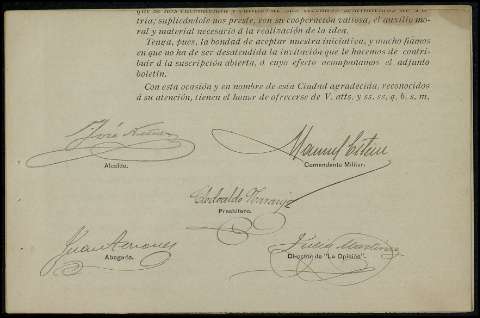 tria; suplicándole nos preste, con su cooperación valiosa, el auxilio mo-
ral y material necesario á la realización de la idea.
Tenga, pues, la bondad de aceptar nuestra iniciativa, y mucho fiamos
en que no ha de ser desatendida la invitación que le hacemos de contri-
buir á la suscripción abierta, á cuyo efecto acompañamos el adjunto
boletín.
Con esta ocasión y en nombre de esta Ciudad agradecida, reconocidos
á su atención, tienen el honor de ofrecerse de V. atts. y ss. ss. q. b. s. m.
Alcalde.
Manuel
Comandante Militar.
Clodoaldo Naranjo
Presbítero.
Juan
Abogado.
Julio Martínez
Director de "La Opinión".